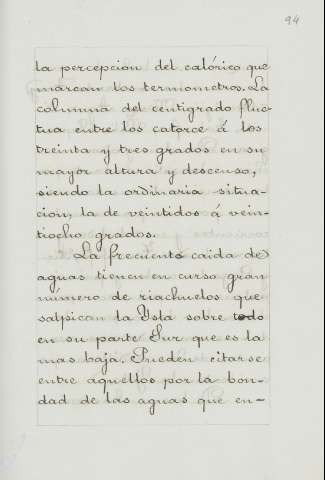 94
la percepcion del calórico que
marcan los termometros. La
columna del centigrado fluc-
tua entre los catorce á los
treinta y tres grados en su
mayor altura y descenso,
siendo la ordinaria situa-
cion, la de veintidos á vein-
tiocho grados.
La frecuente caida de
aguas tienen en curso gran
número de riachuelos que
salpican la Ysla sobre todo
en su parte Sur que es la
mas baja. Pueden citarse
entre aquellos por la bon-
dad de las aguas que en-